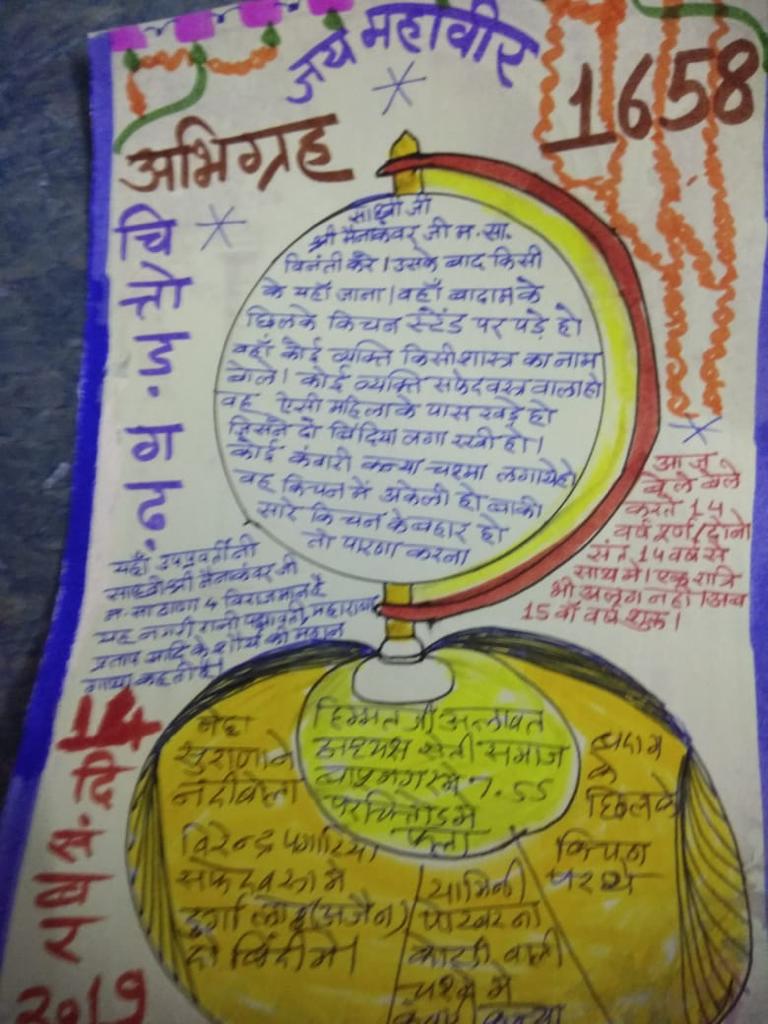 जय महावीर
1658
अभिग्रह
चित्तौड़गढ़.
साध्वी जी
श्री मैनाकंवर जी म.सा.
विनंती करे। उसके बाद किसी
के यहाँ जाना। वहाँ बादाम के
छिलके किचन स्टेंड पर पड़े हो
वहाँ कोई व्यक्ति किसी शास्त्र का नाम
बोले। कोई व्यक्ति सफेद वस्त्र वाला हो
वह ऐसी महिला के पास खड़े हो
जिसने दो बिंदिया लगा रखी हो।
कोई कंवारी कन्या चश्मा लगाये हो
वह किचन में अकेली हो बाकी
सारे किचन के बहार हो
तो पारणा करना
आज
बेले बेले
करते 14
वर्ष पूर्ण / दोनो
संत 14 वर्ष से
साथ में। एक रात्रि
भी अलग नहीं। अब
15 वाँ वर्ष शुरू।
यहाँ उपप्रवर्तीनी
साध्वी श्री मैनाकंवर जी
म.सा ठाणा 4 विराजमान है
यह नगरी रानी पद्मावती, महाराणा
प्रताप आदि के शौर्य की महान
गाथा कहती है।
14
दि
2019
हिम्मत जी अलावत
अध्यक्ष
बापुनगर में 7.55
पर चित्तोड में
फला
नेहा
सुराणा ने
नंदी
विरेन्द्र पगारिया
सफेद वस्त्र में
दुर्गा (अजैन)
दो बिंदी में।
बादाम
के
छिलके
किचन
पर थे
यामिनी
पोरवर ना
वाली
चश्मे में
कंवारी कन्या